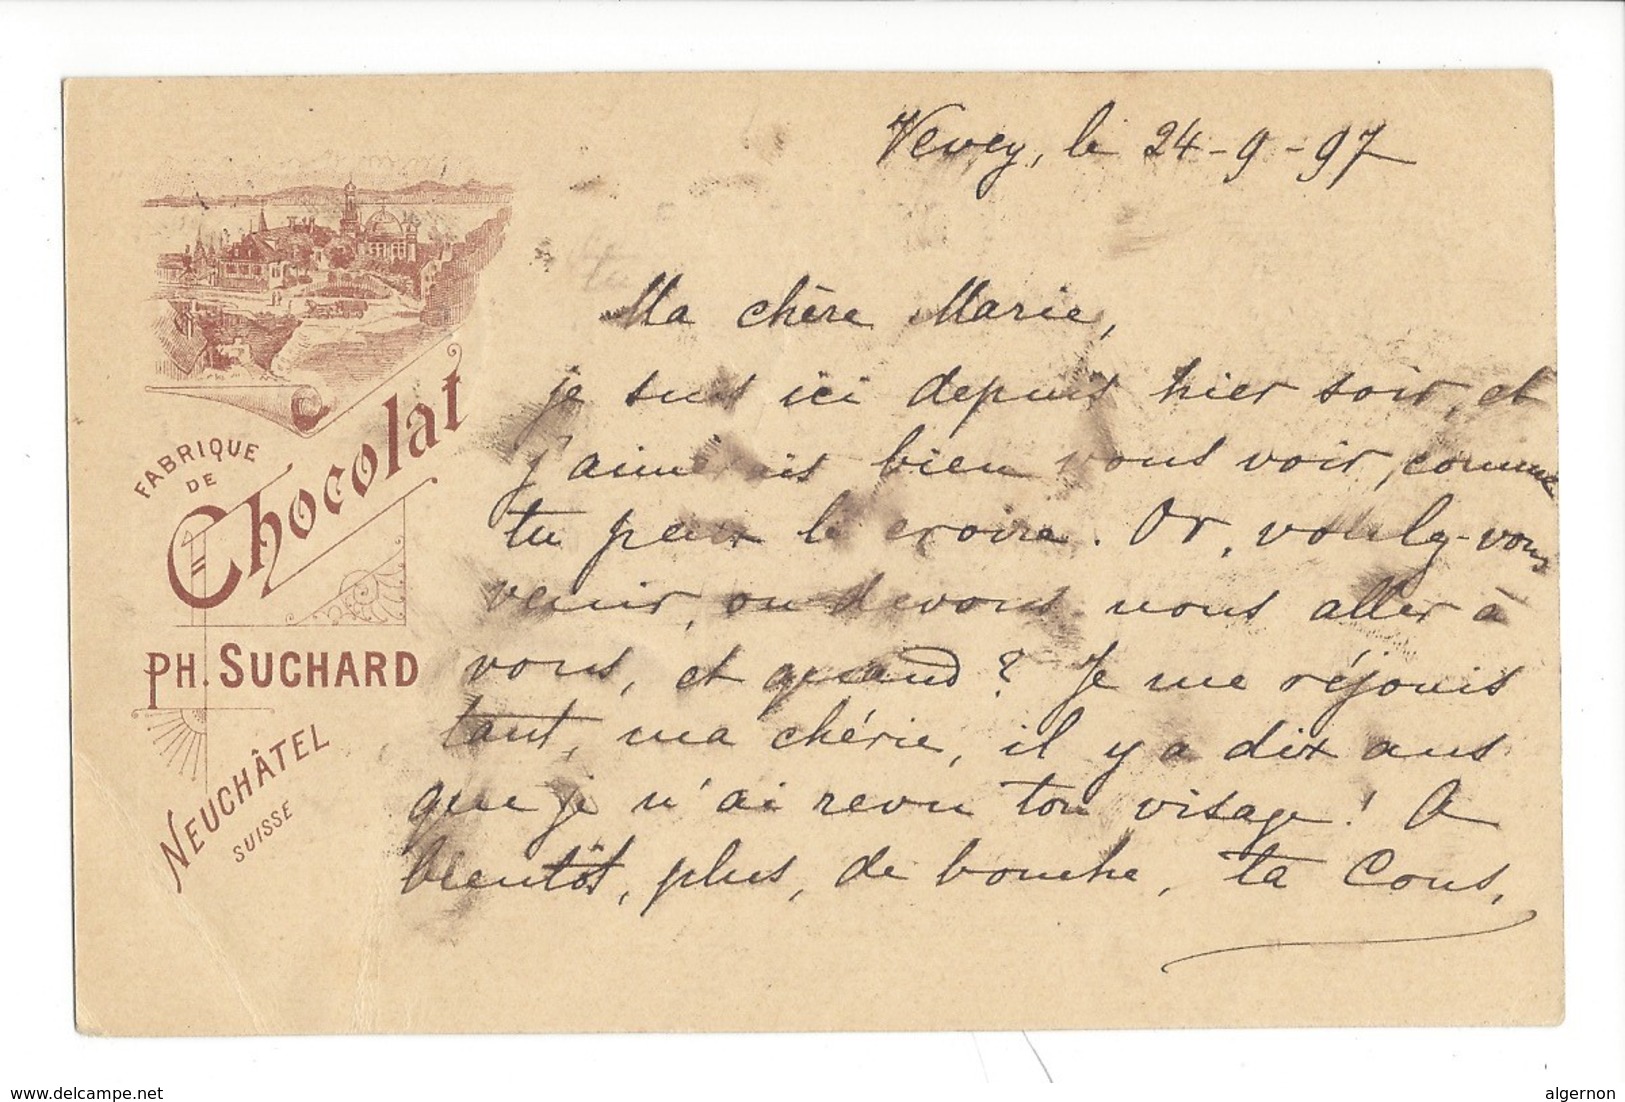 Vevey, le 24-9-97
Ma chère Marie,
je suis ici depuis hier soir, et
j'aimerais bien vous voir, comme
tu peux le croire. Or, voulez-vous
venir, ou devons nous aller à
vous, et quand? Je me réjouis
tant, ma chérie, il y a dix ans
que je n'ai revu ton visage! A
bientôt, plus, de bouche, ta Cous,
FABRIQUE
DE
Chocolat
PH. SUCHARD
NEUCHÂTEL
SUISSE
www.delcampe.net
algernon